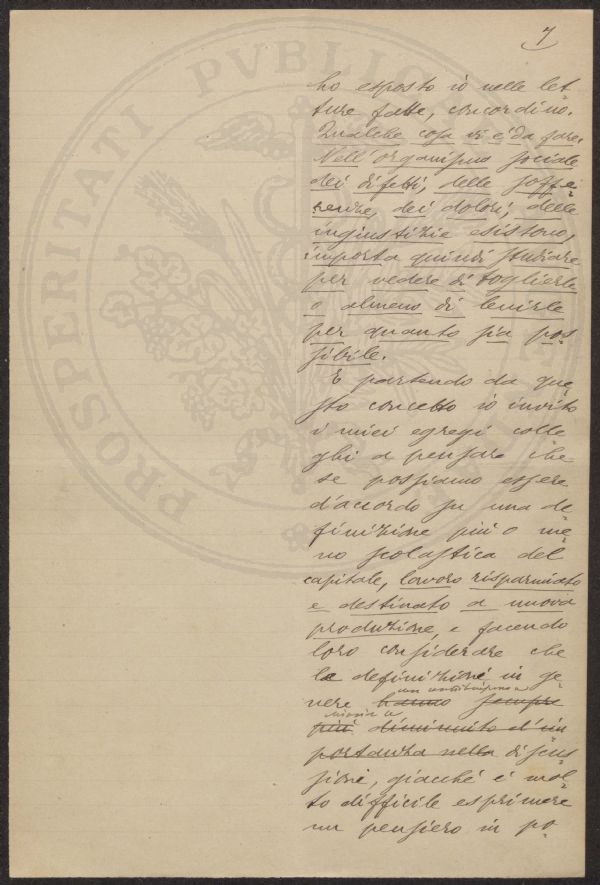 7
PROSPERITATI PVBLICAE
ho esposto io nelle let-
ture fatte, concordino.
Qualche cosa vi è da fare.
Nell'organismo sociale
dei difetti, delle soffe-
renze, dei dolori, delle
ingiustizie esistono,
importa quindi studiare
per vedere di toglierle
o almeno di lenirle
per quanto sia pos-
sibile.
E partendo da que-
sto concetto io invito
i miei egregi colle
ghi a pensare che
se possiamo essere
d'accordo su una de-
finizione più o me-
no scolastica del
capitale, lavoro risparmiato
e destinato a nuova
produzione, e facendo
loro considerare che
le definizioni in ge-
nere hanno sempre
più diminuito d'im
portanza nella discus-
sione, giacché è mol-
to difficile esprimere
un pensiero in po-